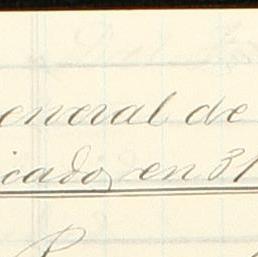 eneral de
icado, en 31